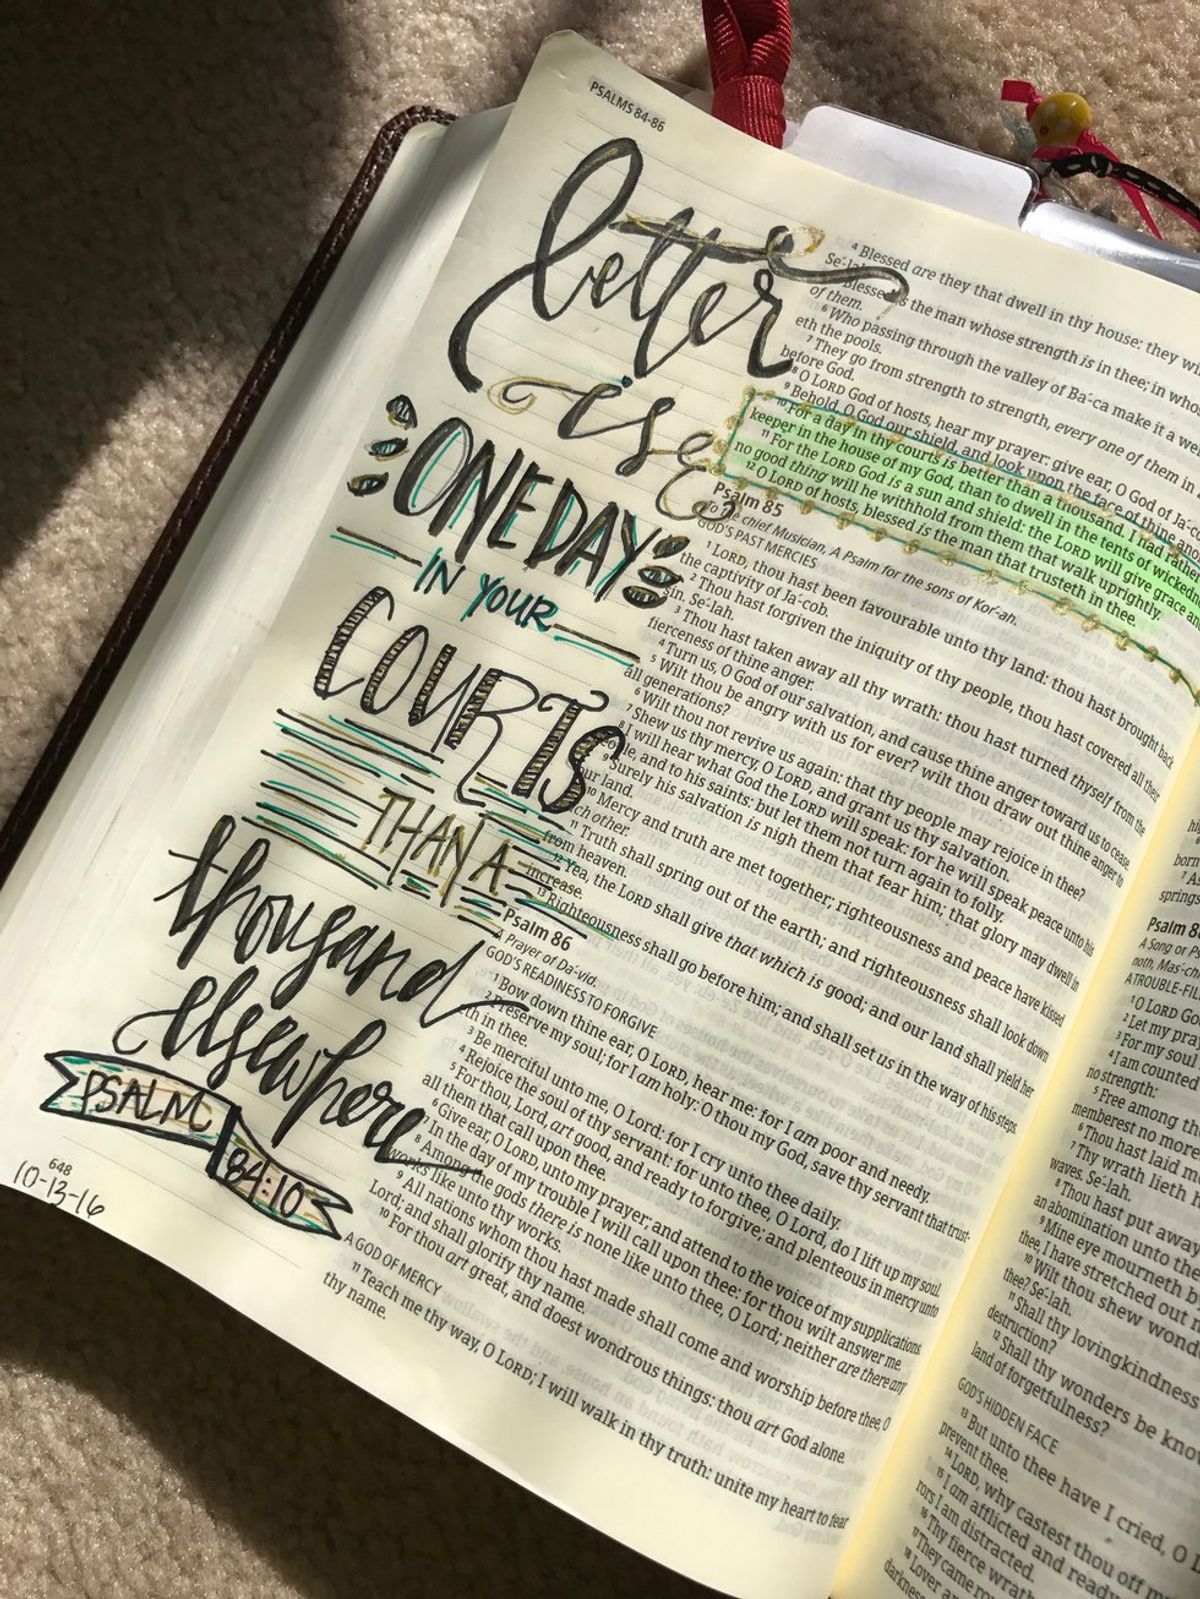 PSALMS 84-86
better
is
ONE DAY
IN YOUR
COURTS
THAN A
thousand
elsewhere
PSALM
84:10
648
10-13-16
4 Blessed are they that dwell in thy house: they
Se-lah.
5 Blessed is the man whose strength is in thee; in
of them.
6 Who passing through the valley of Ba-ca make it a
eth the pools.
7 They go from strength to strength, every one of them in
before God.
8 O LORD God of hosts, hear my prayer: give ear, O God of
9 Behold, O God our shield, and look upon the face of thine
10 For a day in thy courts is better than a thousand. I had rather
keeper in the house of my God, than to dwell in the tents of
11 For the LORD God is a sun and shield: the LORD will give grace
no good thing will he withhold from them that walk uprightly.
12 O LORD of hosts, blessed is the man that trusteth in thee.
Psalm 85
To the chief Musician, A Psalm for the sons of Kor-ah.
GOD'S PAST MERCIES
1 LORD, thou hast been favourable unto thy land: thou hast brought back
the captivity of Ja-cob.
2 Thou hast forgiven the iniquity of thy people, thou hast covered all their
sin. Se-lah.
3 Thou hast taken away all thy wrath: thou hast turned thyself from the
fierceness of thine anger.
4 Turn us, O God of our salvation, and cause thine anger toward us to cease.
5 Wilt thou be angry with us for ever? wilt thou draw out thine anger to
all generations?
6 Wilt thou not revive us again: that thy people may rejoice in thee?
7 Shew us thy mercy, O LORD, and grant us thy salvation.
8 I will hear what God the LORD will speak: for he will speak peace unto his
and to his saints: but let them not turn again to folly.
9 Surely his salvation is nigh them that fear him; that glory may dwell in
our land.
10 Mercy and truth are met together; righteousness and peace have kissed
each other.
11 Truth shall spring out of the earth; and righteousness shall look down
from heaven.
12 Yea, the LORD shall give that which is good; and our land shall yield her
increase.
13 Righteousness shall go before him; and shall set us in the way of his steps.
Psalm 86
A Prayer of Da-vid.
GOD'S READINESS TO FORGIVE
1 Bow down thine ear, O LORD, hear me: for I am poor and needy.
2 Preserve my soul; for I am holy: O thou my God, save thy servant that trust-
eth in thee.
3 Be merciful unto me, O Lord: for I cry unto thee daily.
4 Rejoice the soul of thy servant: for unto thee, O Lord, do I lift up my soul.
5 For thou, Lord, art good, and ready to forgive; and plenteous in mercy unto
all them that call upon thee.
6 Give ear, O LORD, unto my prayer; and attend to the voice of my supplications
7 In the day of my trouble I will call upon thee: for thou wilt answer me.
8 Among the gods there is none like unto thee, O Lord; neither are there any
works like unto thy works.
9 All nations whom thou hast made shall come and worship before thee, O
Lord; and shall glorify thy name.
10 For thou art great, and doest wondrous things: thou art God alone.
A GOD OF MERCY
11 Teach me thy way, O LORD; I will walk in thy truth: unite my heart to fear
thy name.
born
springs
Psalm
A Song or
A TROUBLE-
1 O LORD
2 Let my
3 For my soul
4 I am counted
no strength:
5 Free among the
memberest no more
6 Thou hast laid
7 Thy wrath lieth
waves. Se-lah.
8 Thou hast put away
an abomination unto
9 Mine eye mourneth
thee, I have stretched out
10 Wilt thou shew
thee? Se-lah.
11 Shall thy lovingkindness
destruction?
12 Shall thy wonders be
land of forgetfulness?
GOD'S HIDDEN FACE
13 But unto thee have I cried, O
prevent thee.
14 LORD, why castest thou off
15 I am afflicted and ready
rors I am distracted.
16 Thy fierce wrath
17 They came
18 Lover
darkness